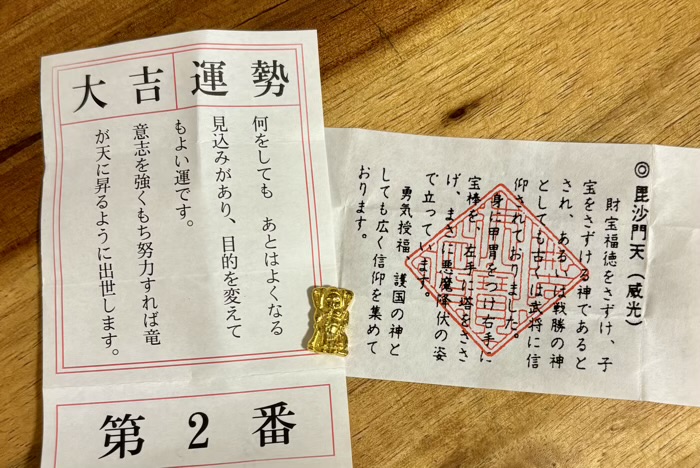 運勢
大吉
何をしても　あとはよくなる
見込みがあり、目的を変えて
もよい運です。
意志を強くもち努力すれば竜
が天に昇るように出世します。
第2番
◎毘沙門天（威光）
財宝福徳をさずけ、子
宝をさずける神であると
され、あるいは戦勝の神
としても古くは武将に信
仰されておりました。
身に甲冑をつけ右手に
宝棒を、左手に塔をささ
げ、まさに悪魔降伏の姿
で立っています。
勇気授福　護国の神と
しても広く信仰を集めて
おります。